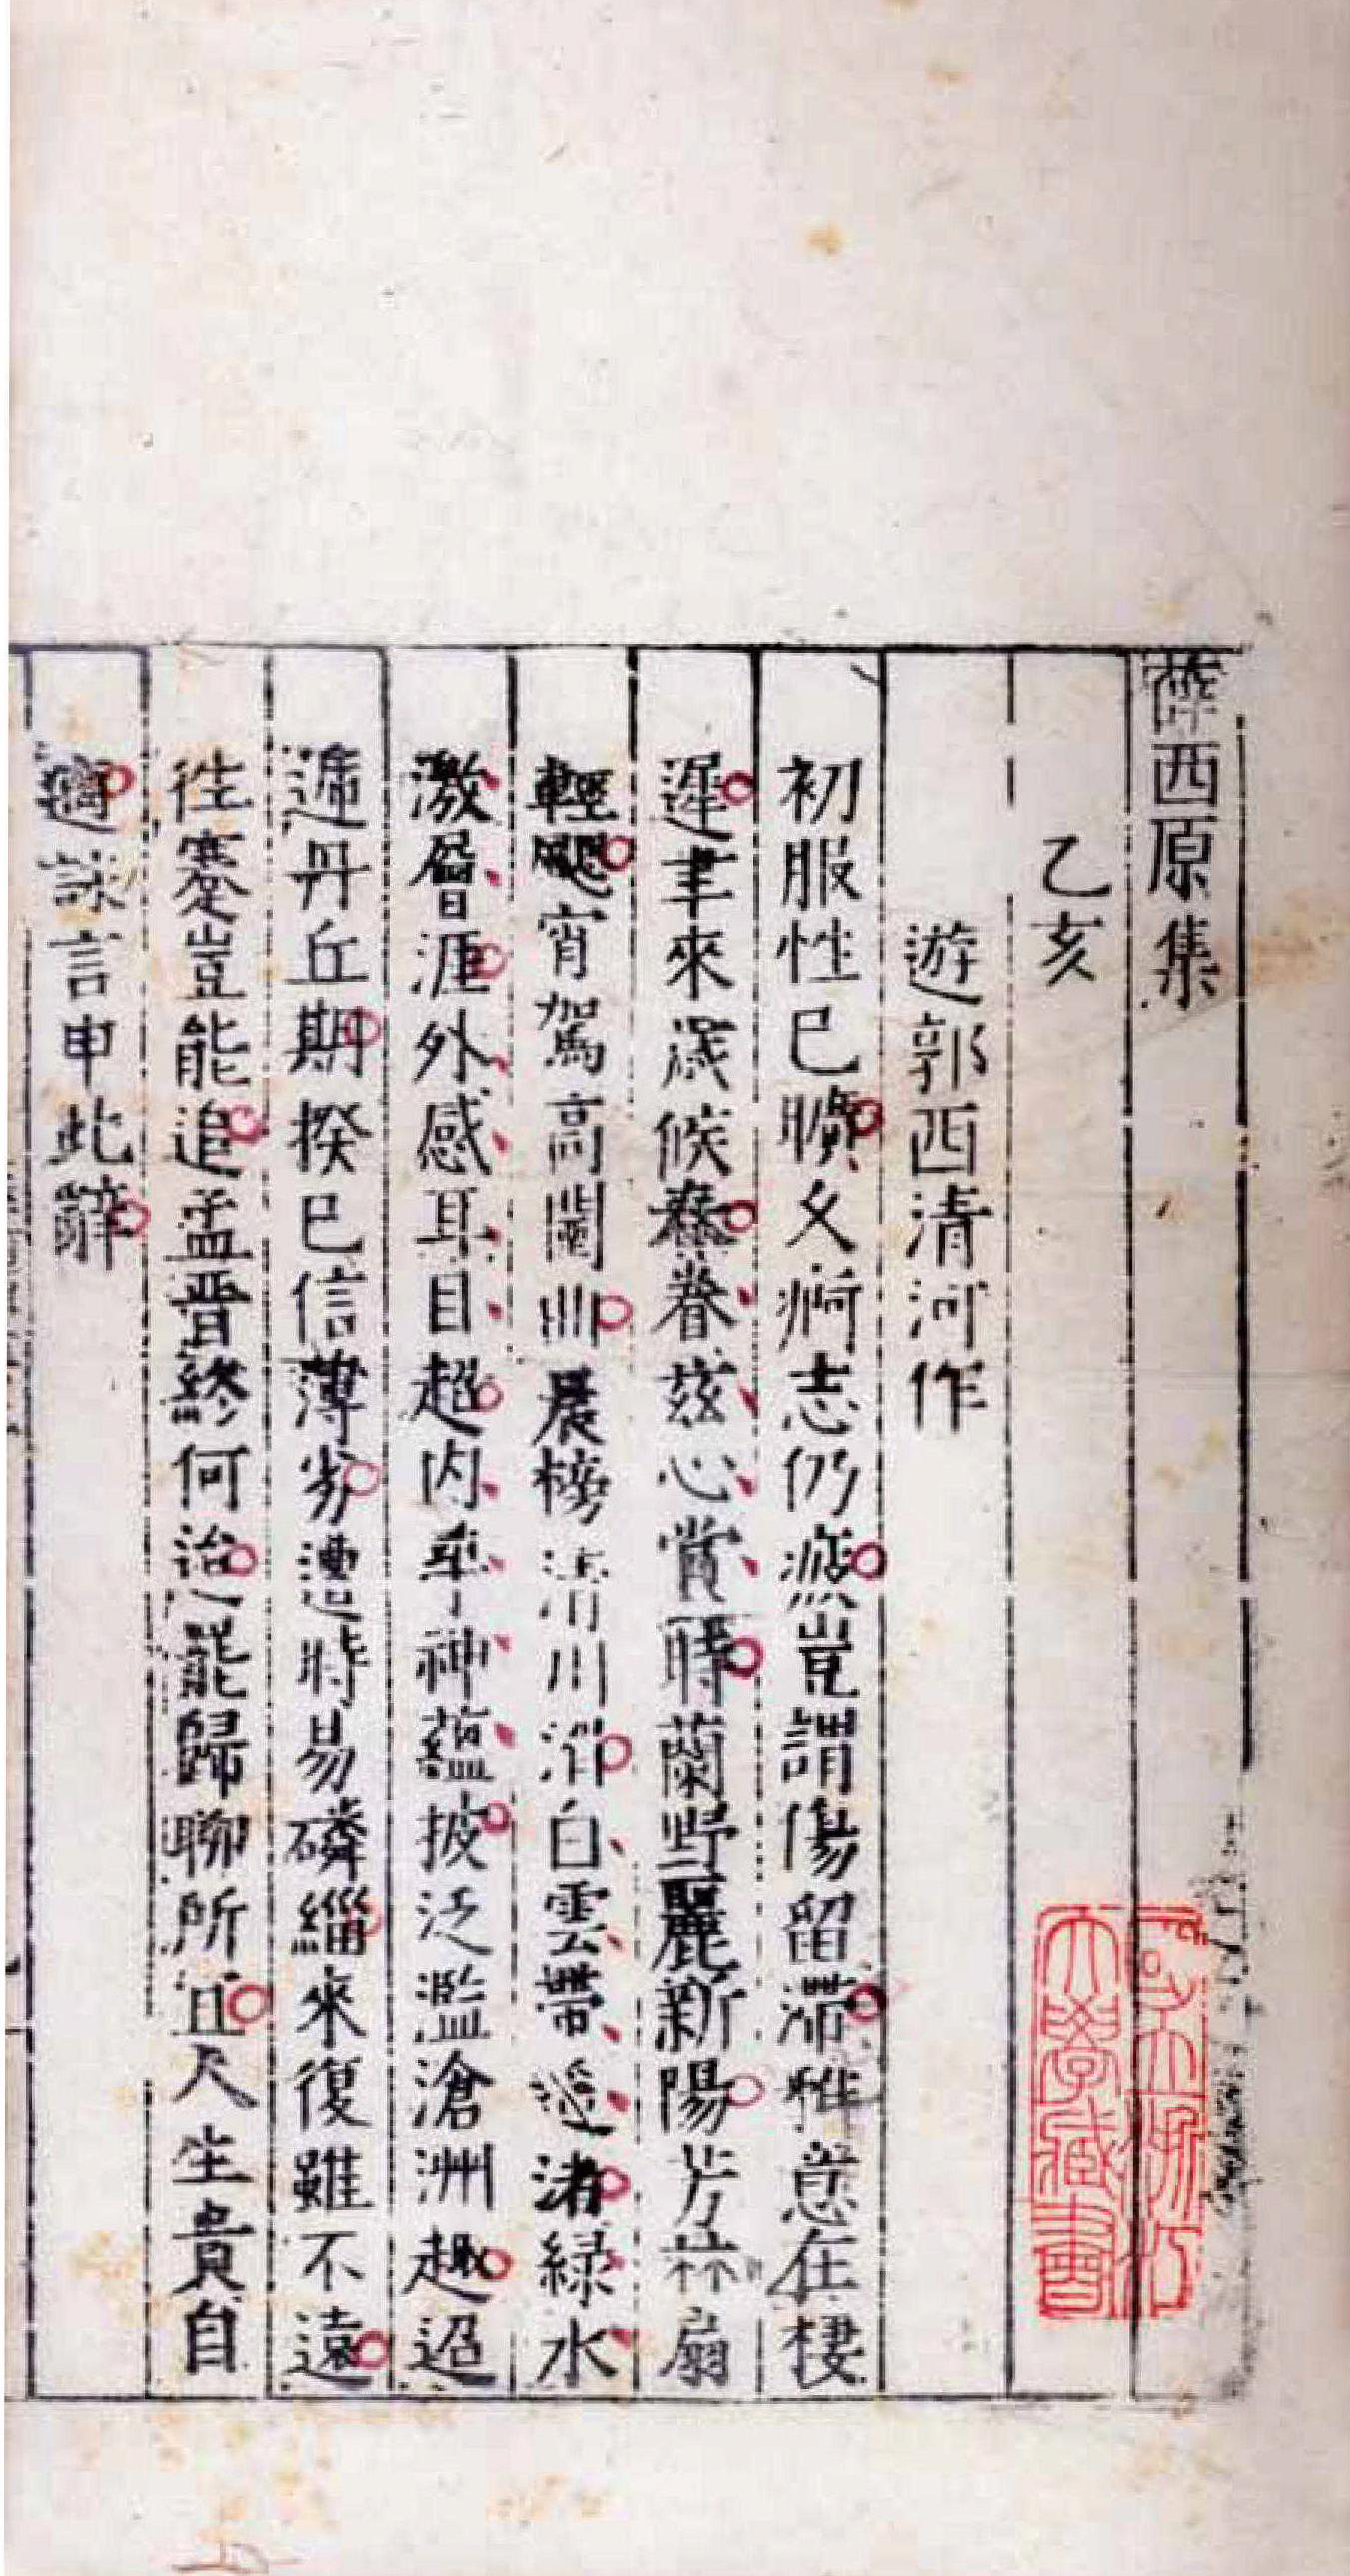 薛西原集
乙亥
遊郭西清河作
初服性已曠久痾志仍疲豈謂傷留滯雅意在棲
遲聿來淺候春眷茲心賞時蘭野麗新陽芳林扇
輕颸宵駕高闉曲晨榜清川湄白雲帶遥渚緑水
激曾涯外感耳目超内率神蘊披泛濫滄洲趣迢
遞丹丘期揆已信薄劣遭時易磷緇來復雖不遠
徃蹇豈能追孟晋終何迨罷歸聊所且人生貴自
適詠言申此辭
國立浙江
大學藏書